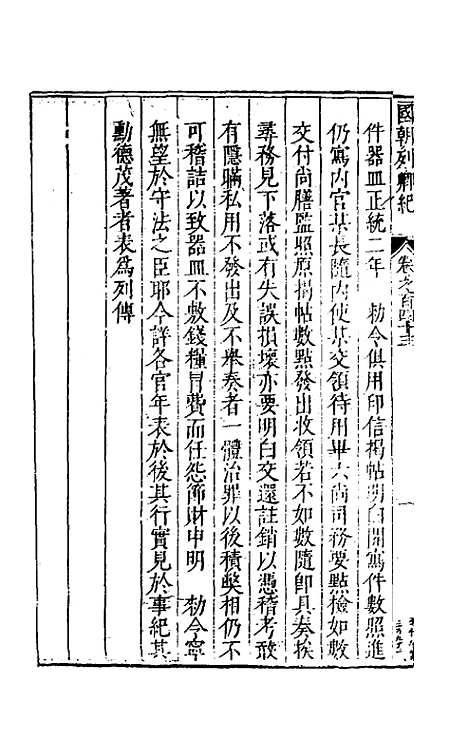 國朝列卿紀 卷之百四十三
件器皿正統二年 勑令俱用印信揭帖明白開寫件數照進
仍寫内官某長隨内使某交領待用畢六尚司務要點檢如數
交付尚膳監照原揭帖數點發出收領若不如數隨卽具奏挨
尋務見下落或有失誤損壞亦要明白交還註銷以憑稽考敢
有隱瞞私用不發出及不舉奏者一體治罪以後積奬相仍不
可稽詰以致器皿不敷錢糧冐費而任怨節財申明 勑令寧
無望於守法之臣耶今詳各官年表於後其行實見於事紀其
勳德茂著者表爲列傳